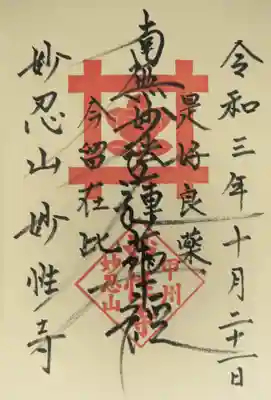 令和三年十月二十一日
是好良薬
南無妙法蓮華経
今留在此
妙忍山 妙性寺
甲州
妙忍山